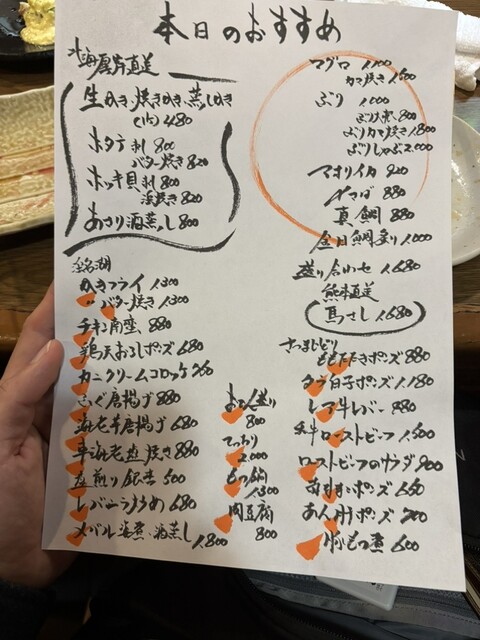 本日のおすすめ
北海厚岸直送
生かき、焼きかき、蒸しかき
(1ヶ) 480
ホタテ 刺 800
バター焼き 820
ホッキ貝 刺 800
浜焼き 820
あさり酒蒸し 800
マグロ 1,100
カマ焼き 1,600
ぶり 1,000
ぶり大根 800
ぶりカマ焼き 1,800
ぶりしゃぶ 2,000
アオリイカ 920
〆さば 880
真鯛 880
金目鯛炙り 1,000
盛り合わせ 1,680
熊本直送
馬さし 1,680
かきフライ 1,300
〃 バター焼き 1,300
チキン南蛮 880
鶏天おろしポン酢 680
カニクリームコロッケ
ふぐ唐揚げ 980
海老芋唐揚げ 680
車海老塩焼き 880
煎り銀杏 500
レバニラ炒め 680
メバル 煮、酒蒸し 1,800
おでん盛り
800
てっちり
2,000
もつ鍋
1,300
肉豆腐
800
さつまじどり
ももたたきポン酢 880
タラ白子ポン酢 1,180
レア牛レバー 880
和牛ローストビーフ 1,500
ローストビーフのサラダ 900
ポン酢
あん肝ポン酢
牛もつ煮 600